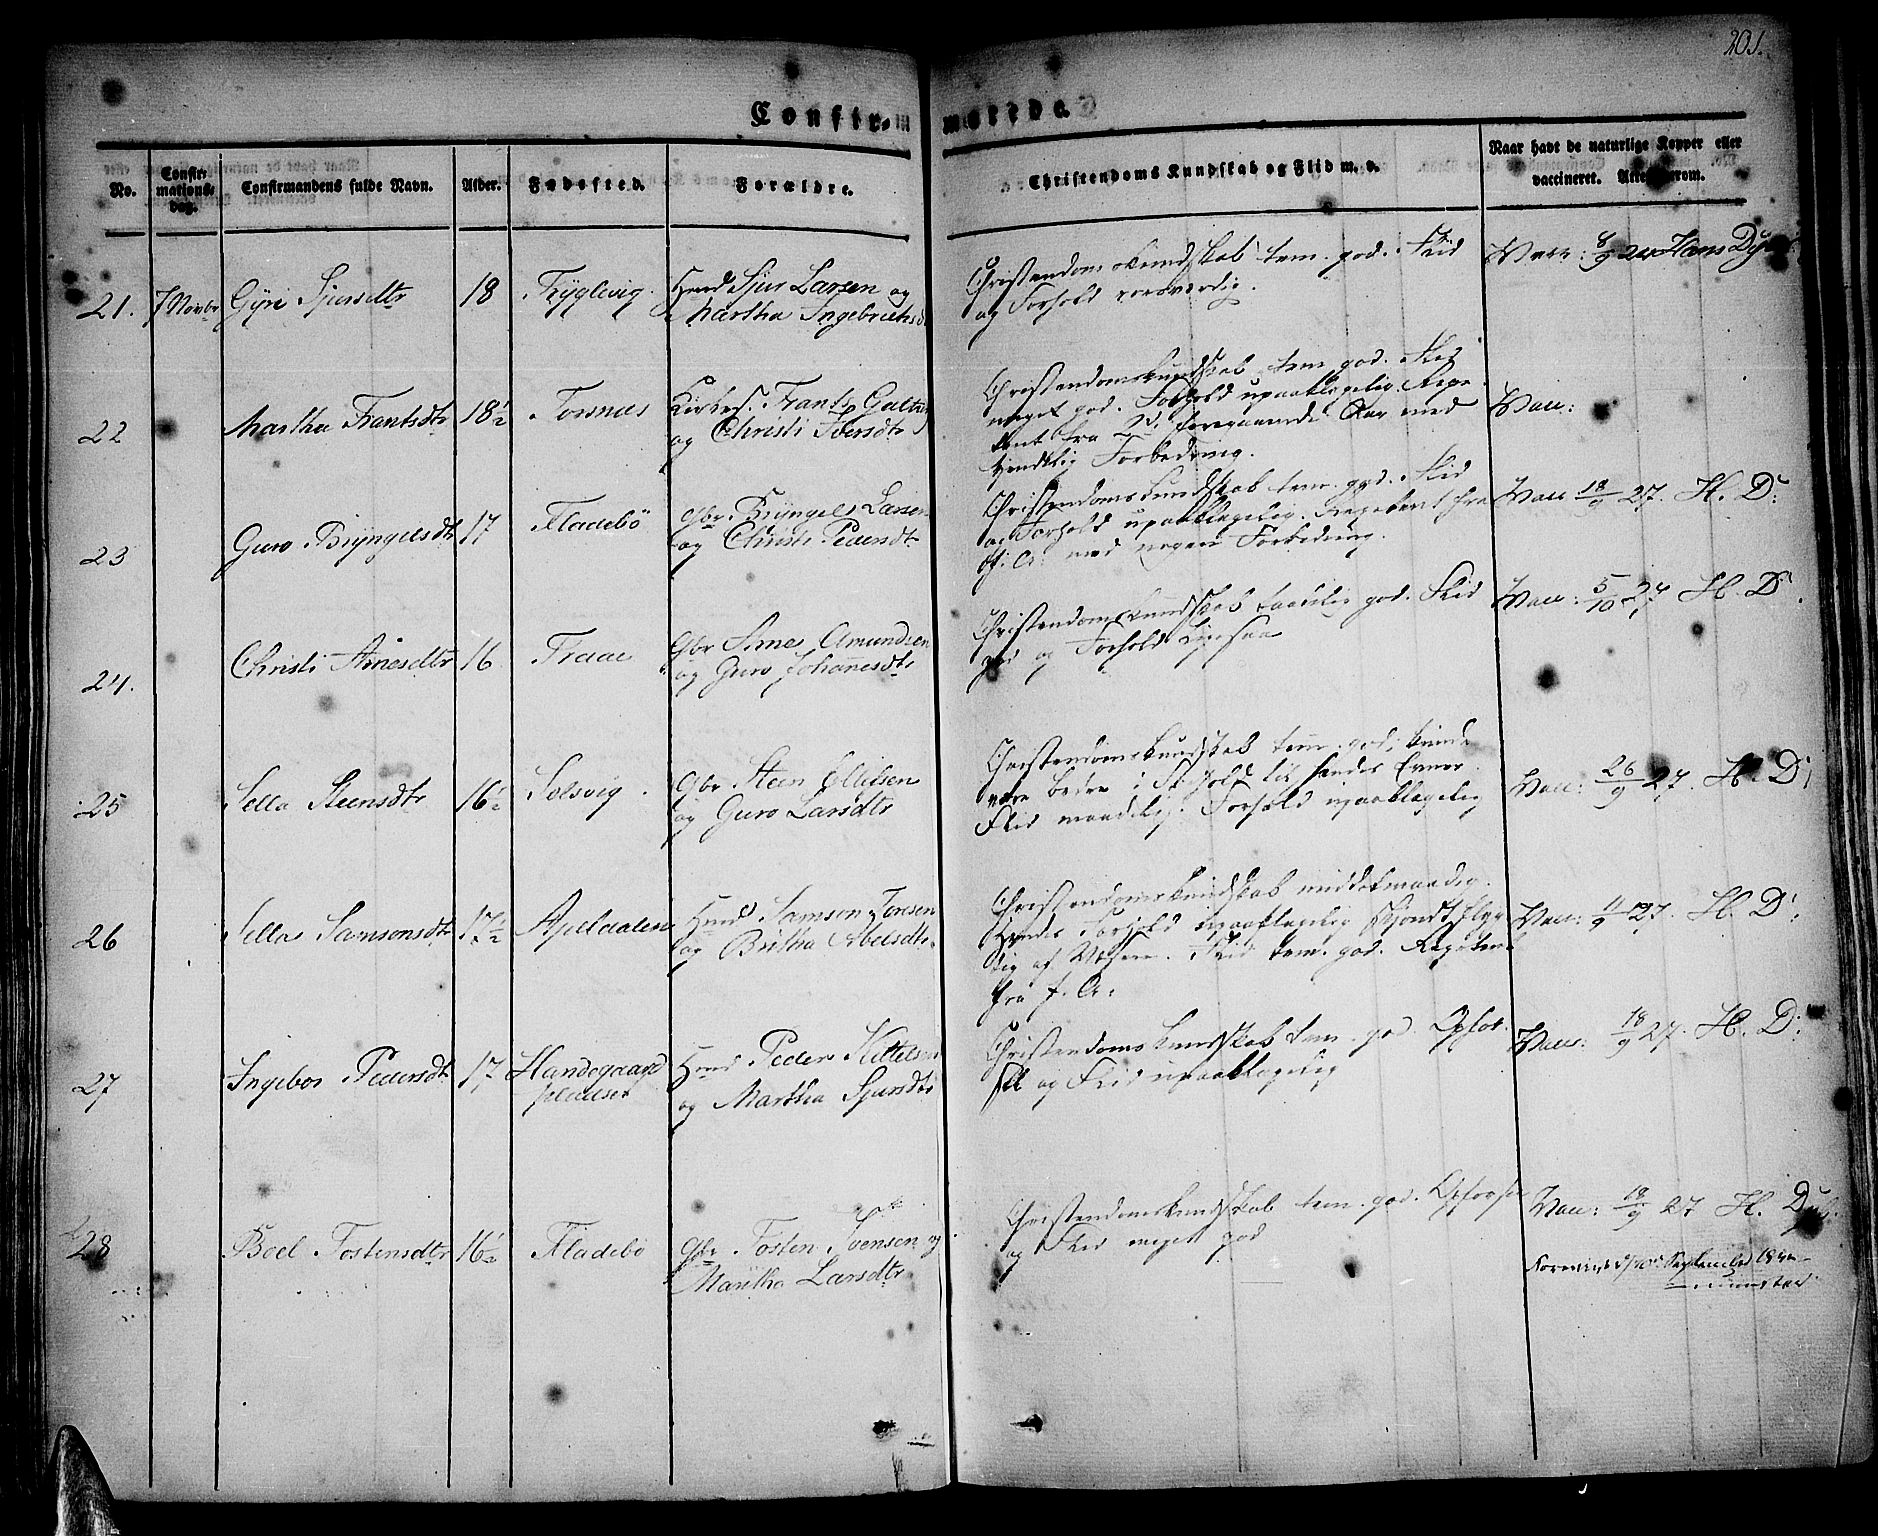 201.
Confir- merede.
No.
Confir-
mations-
dag.
Confirmandens fulde Navn.
Alder.
Fødested.
Forældre.
Christendoms Kundskab og Flid m. v.
Naar havt de naturlige Kopper eller
vaccineret. Attest derom.
21. 7 Novbr Gÿri Sjursdtr 18 Trÿglevig.
Hmd Sjur Larsen og
Martha Ingebrichtsd
Christendoms Kundskab tem. god. Flid
og Forhold roesværdig.
Vacc: 8/9 Hans Dy
22 Martha Frantsdtr 18½ Torsnæs
Kirkes. Frants
og Christi Iversdtr
Christendomskundskab tem god. Flid
meget god. Forhold upaaklagelig. Repe
tent fra foregaaende Aar med
kjendelig Forbedring.
Vacc:
23 Guro Brÿngelsdtr 17 Fladebö
Gbr. Brÿngel Larsen
og Christi Pedersdtr
Christendomskundskab tem. god. Flid
og Forhold upaaklagelig. Repetent fra
f: A: med nogen Forbedring.
Vacc 18/9 27. H. D:
24. Christi Arnesdtr 16 Traae
Gbr Arne Amundsen
og Guro Johanesdtr
Christendomskundskab god. Flid
god og Forhold ligesaa
Vacc: 5/10 27 H. D:
25 Sella Steensdtr 16½ Solsvig.
Gbr. Steen Ellilsen
og Guro Larsdtr
Christendomskundskab tem. god; kunde
være bedre i Forhold til hendes Evner.
Flid maadelig. Forhold upaaklagelig
Vacc: 26/9 27. H. D:
26 Sella Samsonsdtr 17½ Apeldalen
Hmd Samson Toresen
og Brithe Abelsdtr.
Christendomskundskab middelmaadig.
Hendes Forhold upaaklagelig skjöndt flyg
tig af Væsen. Flid tem. god. Repetent
fra f. A:
Vacc: 11/9 27. H. D:
27 Ingebor Pedersdt 17 Handegaard
pladset
Hmd Peder Kittelsen
og Martha Sjursdtr
Christendoms Kundskab tem. god. Opför-
sel og Flid upaaklagelig
Vacc: 18/9 27. H. D:
28 Boel Tostensdtr 16½ Fladebö
Gbr. Tosten Svensen og
Martha Larsdtr
Christendomskundskab tem. god. Opförsel
og Flid meget god
Vacc: 18/9 27 H. Dyb.
September